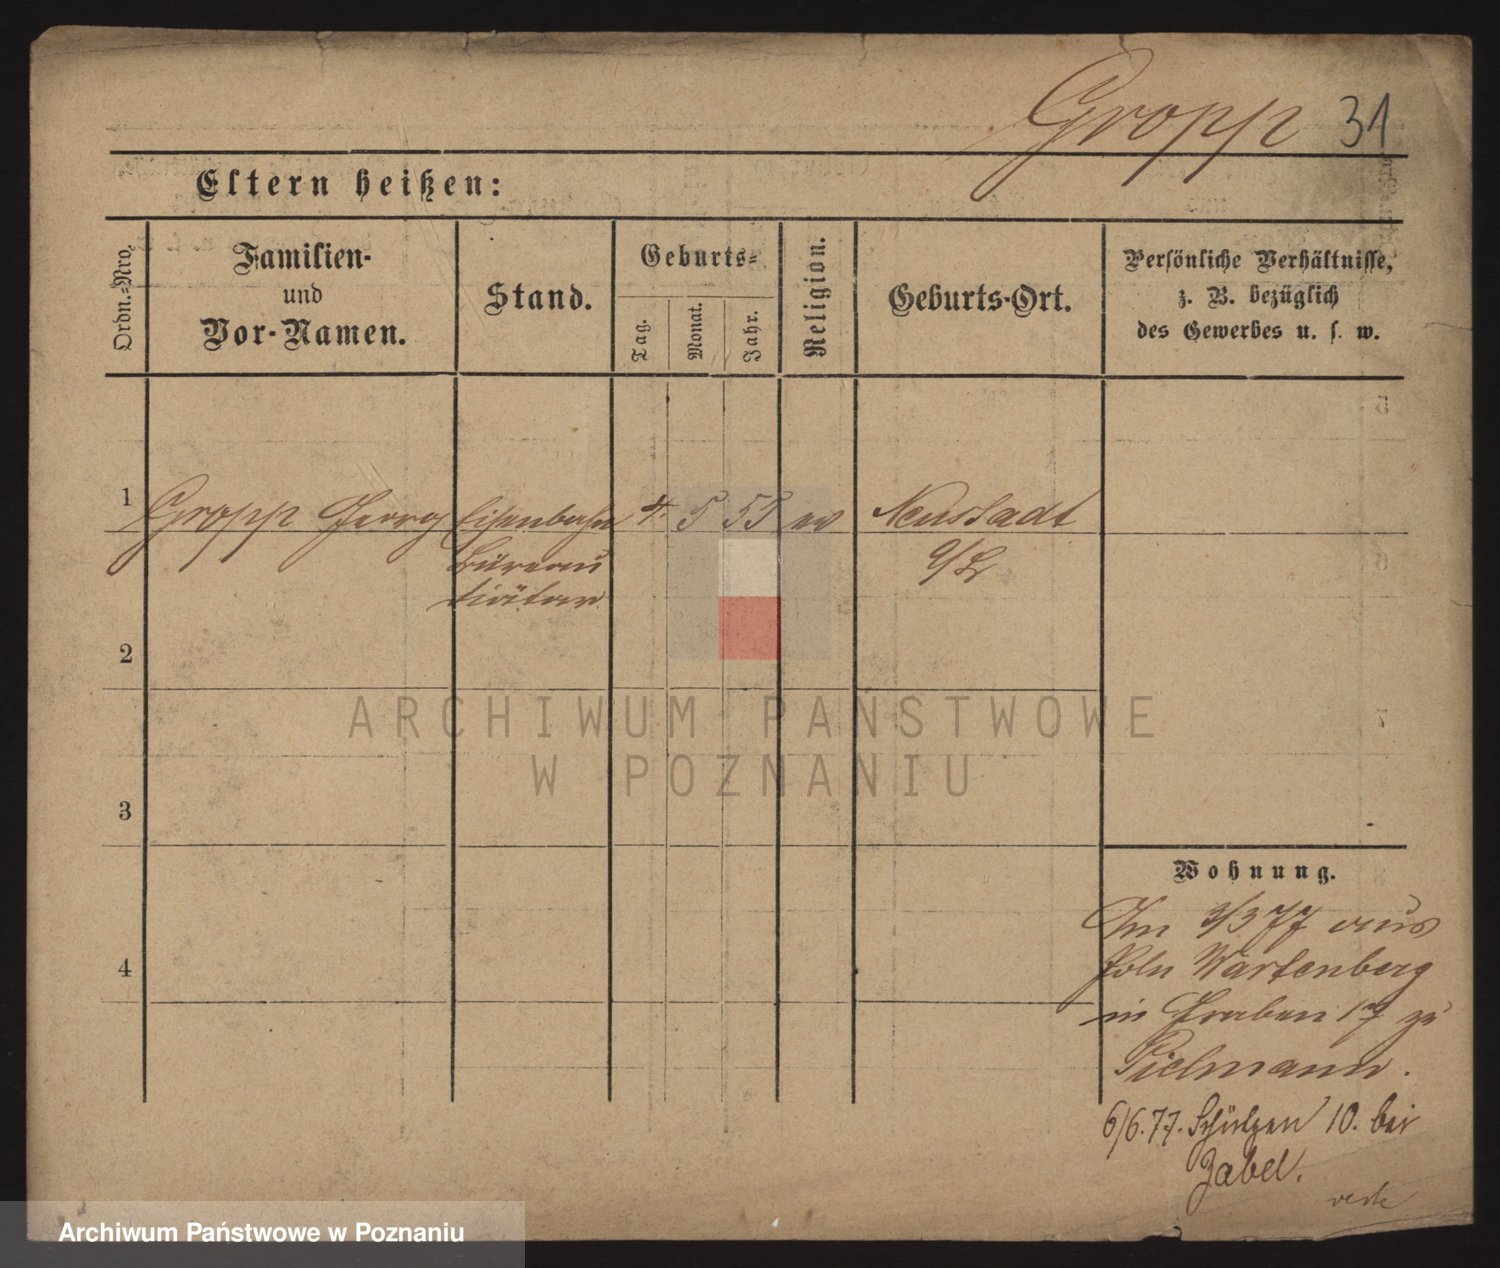 Gropp 31
Eltern heißen:
Ordn.-Nro.
Familien-
und
Vor-Namen.
Stand.
Geburts-
Tag.
Monat.
Jahr.
Religion.
Geburts-Ort.
Persönliche Verhältnisse,
z. B. bezüglich
des Gewerbes u. s. w.
1 Gropp Georg Eisenbahn 4 5 55 ev Neustadt
Büreau
diätar
2
3
4
Wohnung.
Im 3/3 77 aus
Poln Wartenberg
in Graben 17 zu
Pielmann.
6/6.77. Schützen 10. bei
Zabel.
ARCHIWUM PAŃSTWOWE
W POZNANIU
Archiwum Państwowe w Poznaniu